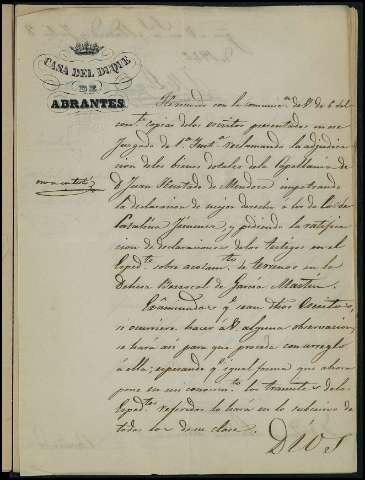 CASA DEL DUQUE
DE
ABRANTES.
He recibido con la comunicacn. de V. de 6 del
corrte. copias de los escritos presentados en ese
Juzgado de 1a. Insta. reclamando la adjudica-
cion de los bienes dotales de la Capellania de
D. Juan Hurtado de Mendoza impetrando
la declaracion de mejor derecho á los de la
Catalina Jimenez, y pidiendo la ratifica-
cion de declaraciones de los testigos en el
Espedte. sobre acotamto. de terrenos en la
Dehesa Barrocal de Garcia Martin.
Examinados qe. sean dhos. Escritos,
si ocurriere hacer á V. alguna observacion,
se hará asi para que proceda con arreglo
á ella; esperando qe. igual forma que ahora
pone en mi conocimto. los tramites de los
Espedtes. referidos lo hará en lo sucesivo de
todos los de su clase.
Dios